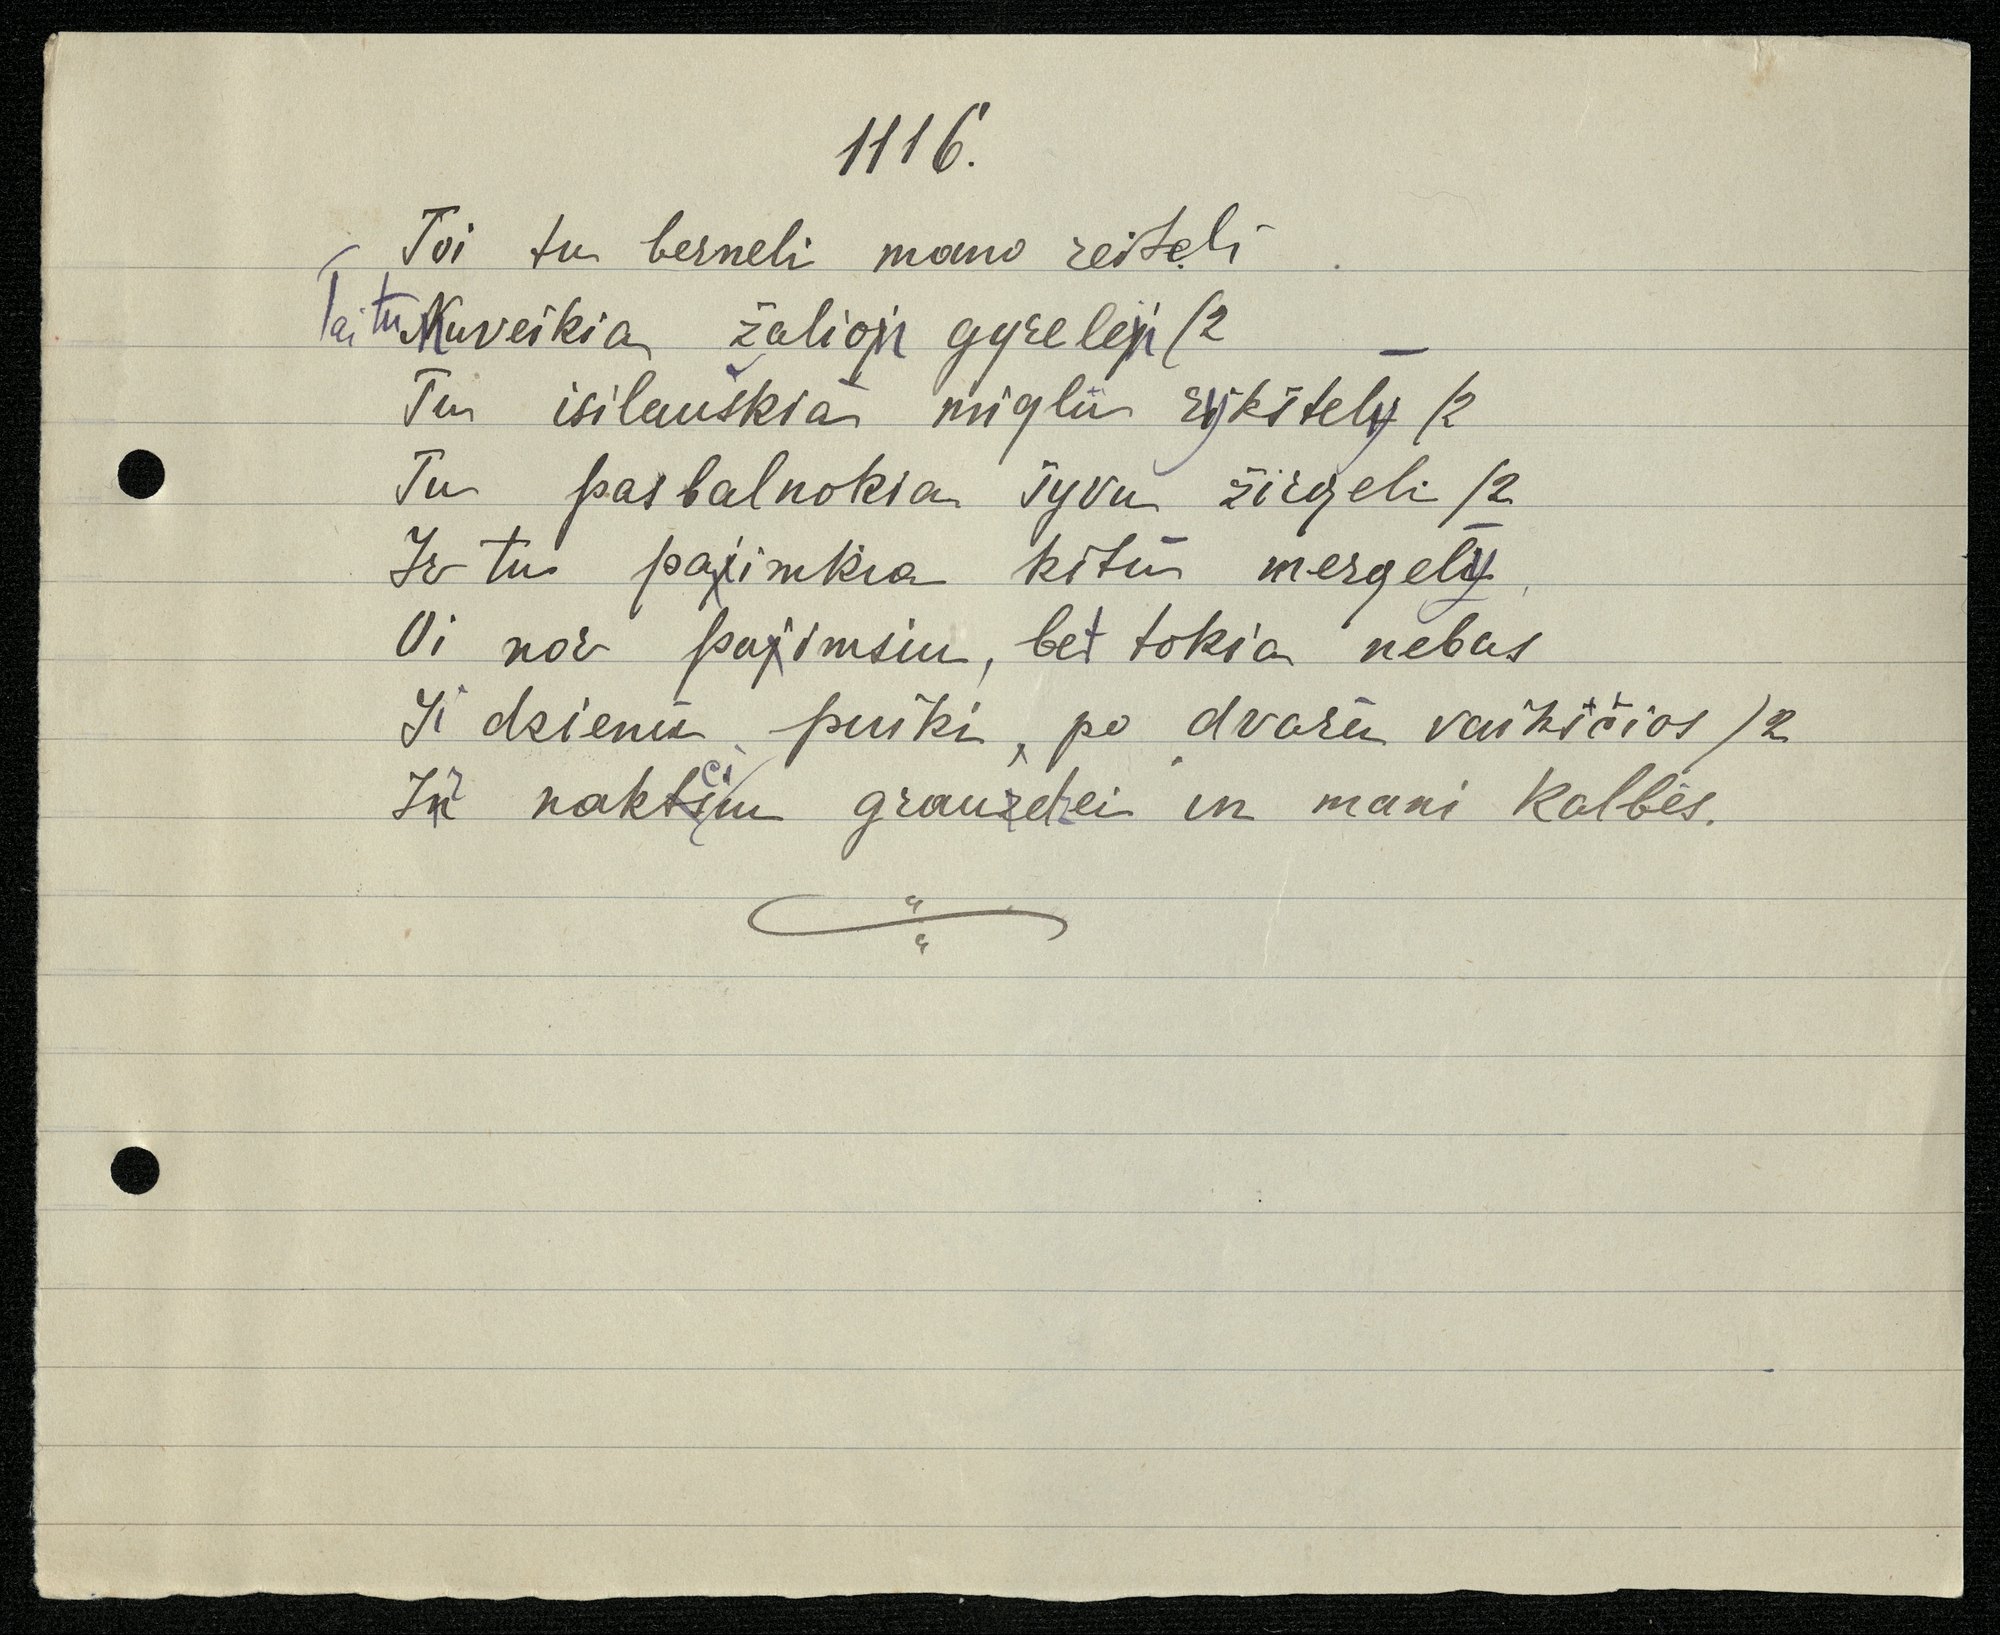 1116.
Toi tu berneli mano reiteli
Tai tu Nuveikia žalion gyrelėn /2
Tu isilauškia miglū rykštely /2
Tu pasbalnokia šyvu žirgeli /2
Ir tu paimkia kitū mergely
Oi nor paimsiu, bet tokia nebus
Ji dzienū puiki, po dvarū vaikščios /2
Ir nakciu graudzei in mani kalbės.